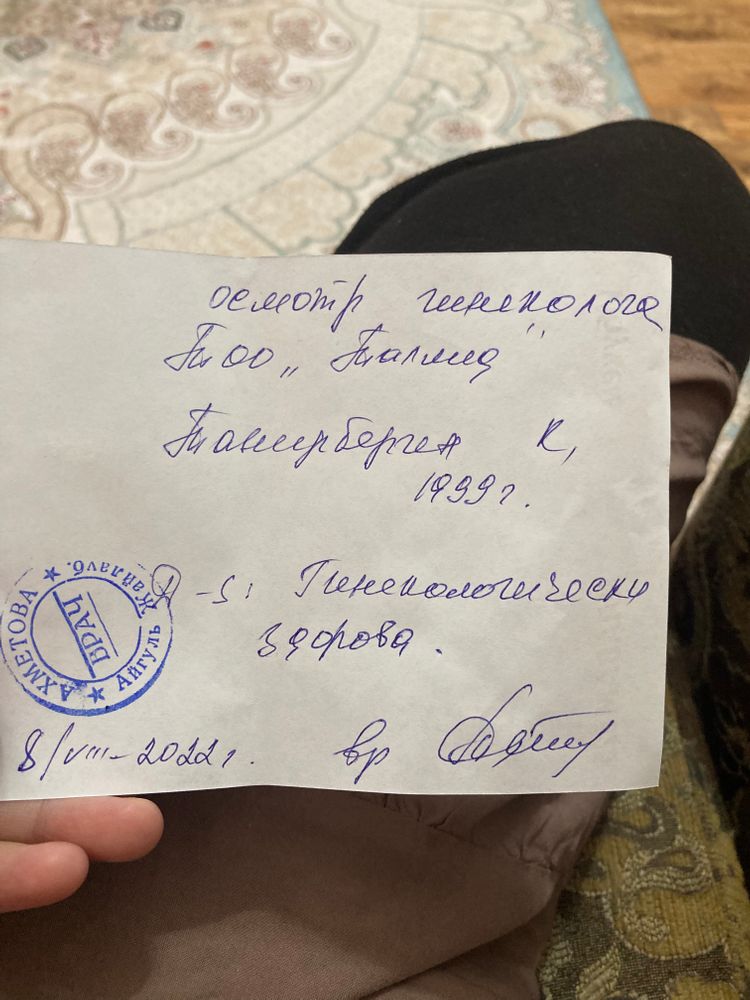 осмотр гинеколога
ТОО „Талмед"
Танирберген К,
1999г.
D-s: Гинекологически
здорова.
АХМЕТОВА
Айгуль Жайлауб.
ВРАЧ
8/VIII-2022г. вр